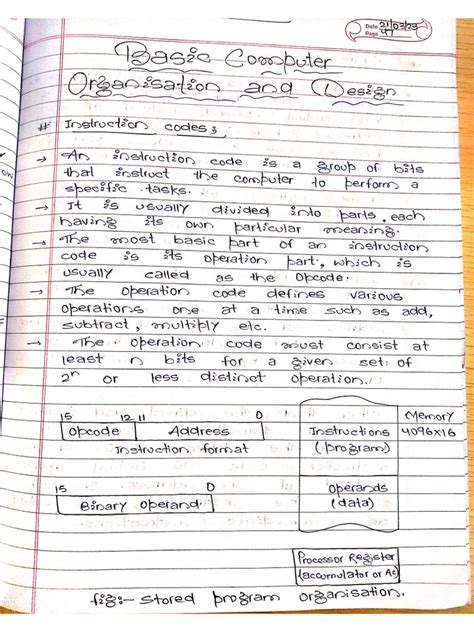 Date 21/03/23
Page 47
Basic Computer
Organisation and Design
# Instruction codes :
→ An instruction code is a group of bits
that instruct the computer to perform a
specific tasks.
→ It is usually divided into parts, each
having its own particular meaning.
→ The most basic part of an instruction
code is its operation part, which is
usually called as the Opcode.
→ The operation code defines various
operations one at a time such as add,
subtract, multiply etc.
→ The operation code must consist at
least n bits for a given set of
2ⁿ or less distinct operation.
15 12 11 0
Opcode Address
Instruction format
15 0
Binary Operand
Memory
4096x16
Instructions
(program)
Operands
(data)
Processor Register
(accumulator or Ac)
fig:- Stored program organisation.